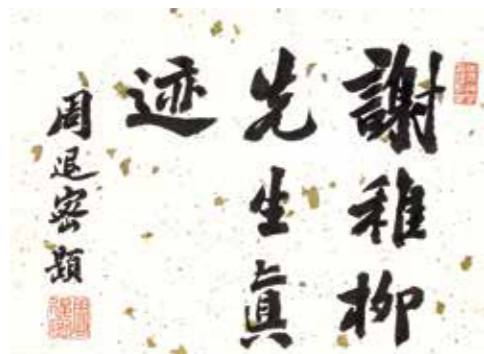 謝稚柳
先生真
迹
周退密題